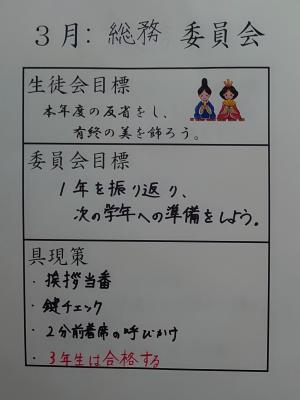 3月：総務 委員会
生徒会目標
本年度の反省をし、
有終の美を飾ろう。
委員会目標
1年を振り返り、
次の学年への準備をしよう。
具現策
・挨拶当番
・鍵チェック
・2分前着席の呼びかけ
・3年生は合格する